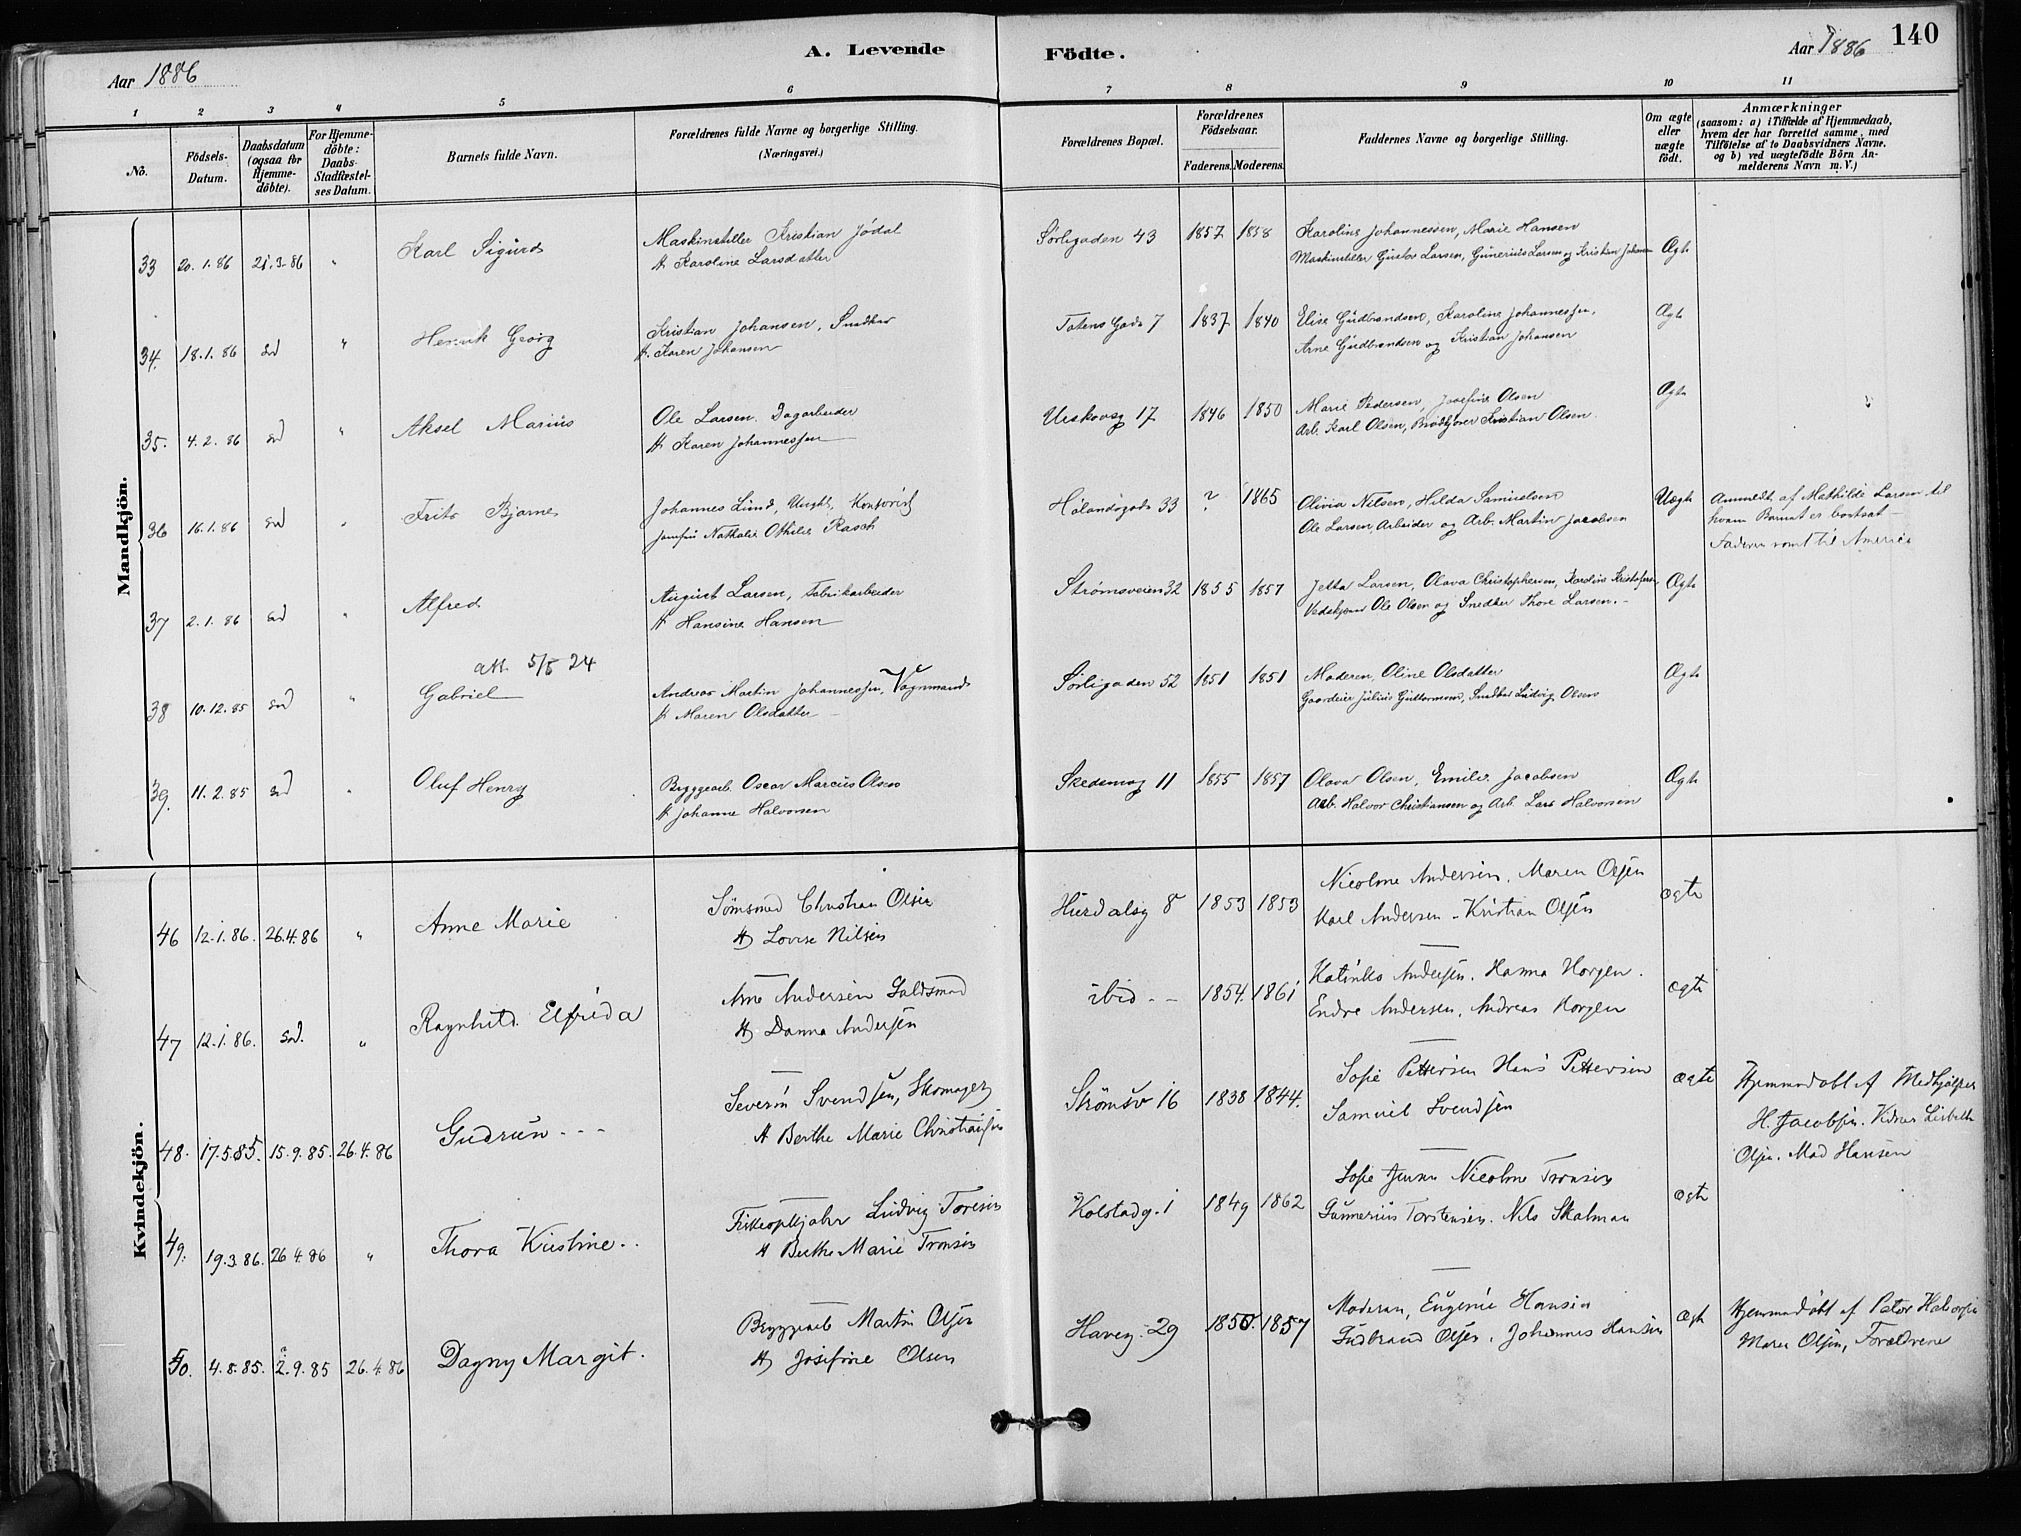 A. Levende Födte.
140
Aar 1886
Aar 1886
1 2 3 4 5 6 7 8 9 10 11
No.
Födsels-Datum.
Daabsdatum (ogsaa for Hjemme-döbte).
For Hjemme-döbte: Daabs-Stadfæstel-ses Datum.
Barnets fulde Navn.
Forældrenes fulde Navne og borgerlige Stilling.
(Næringsvei.)
Forældrenes Bopæl.
Forældrenes Födselsaar.
Faderens. Moderens.
Faddernes Navne og borgerlige Stilling.
Om ægte eller uægte födt.
Anmærkninger
(saasom: a) i Tilfælde af Hjemmedaab,
hvem der har forrettet samme, med
Tilföielse af to Daabsvidners Navne.
og b) ved uægtefödte Börn An-
melderens Navn m. V.)
Mandkjön.
33 20.1.86 21.3.86 " Karl Sigurd
Maskinstiller Kristian Jödal
H Karoline Larsdatter
Sörligaden 43 1857 1858
Karoline Johannessen, Marie Hansen
Maskinstiller Gustav Larsen, Gunerius Larsen og Kristian Johansen
Ægte
34. 18.1.86 sd " Henrik Georg
Kristian Johansen, Snedker
H. Karen Johansen
Totens Gade 7 1837 1840
Elise Gudbrandsen, Karoline Johannessen,
Arne Gudbrandsen og Kristian Johansen
Ægte
35. 4.2.86 sd " Aksel Marius
Ole Larsen. Dagarbeider
H Karen Johannessen
Urskovsg 17 1846 1850
Marie Pedersen, Josefine Olsen
Arb. Karl Olsen, Brödkjører Kristian Olsen
Ægte
36 16.1.86 sd " Frits Bjarne
Johannes Lund, Ungk., Kontorist
Josefin Nathalie Othilie Rasch
Hölandsgade 33 ? 1865
Olivia Nilsen, Hilda Samuelsen
Ole Larsen, Arbeider og Arb. Martin Jacobsen
Uægte
Anmeldt af Mathilde Larsen til
hvem Barnet er bortsat -
Faderen rømt til Amerika
37 2.1.86 sd " Alfred
August Larsen, Fabrikarbeider
H Hansine Hansen
Strömsveien 32 1855 1857
Jetta Larsen, Olava Christophersen, Karoline Kristofersen
Vedskjører Ole Olsen og Snedker Thore Larsen. -
Ægte
att. 5/5 24
38 10.12.85 sd " Gabriel
Andreas Martin Johannessen, Vognmand
H. Maren Olsdatter
Sörligaden 52 1851 1851
Moderen, Oline Olsdatter
Gaardeier Julius Guttormsen, Snedker Ludvig Olsen
Ægte
39. 11.2.85 sd " Oluf Henry
Byggearb. Oscar Marcus Olsen
H Johanne Halvorsen
Skedsmog 11 1855 1857
Olava Olsen, Emilie Jacobsen
Arb. Halvor Christiansen og Arb. Lars Halvorsen
Ægte
Kvindekjön.
46 12.1.86. 26.4.86 " Anne Marie
Sömsmed Christian Olsen
H Lovise Nilsen
Hurdalsg 8 1853 1853
Nicoline Andersen. Maren Olsen
Karl Andersen - Kristian Olsen
ægte
47 12.1.86. sd. " Ragnhild Elfrida
Arne Andersen Guldsmed
H Danna Andersen
ibid. - 1854. 1861
Katinka Andersen. Hanna Horgen.
Endre Andersen, Andreas Horgen
ægte
48. 17.5.85. 15.9.85. 26.4.86 Gudrun - - -
Severin Svendsen, Skomager
H Berthe Marie Christiansen
Strömsv 16 1838 1844.
Sofie Pettersen Hans Pettersen
Samuel Svendsen
ægte
Hjemmedöbt af Medhjælper
H. Jacobsen. Vidner Lisbeth
Olsen. Mad Hansen
49. 19.3.86. 26.4.86 " Thora Kristine..
Fiskeopkjøber Ludvig Toresen
H Berthe Marie Tronsen
Kolstadg. 1 1849 1862
Sofie Jensen Nicoline Tronsen
Gunnerius Torstensen. Nils Skalman
ægte
50. 4.8.85. 2.9.85 26.4.86 Dagny Margit.
Byggearb Martin Olsen
H Josefine Olsen
Haveg. 29 1850. 1857
Moderen, Eugenie Hansen
Gudbrand Olsen. Johannes Hansen
Ægte
Hjemmedöbt af Pastor Halvorsen
Maren Olsen, Forældrene